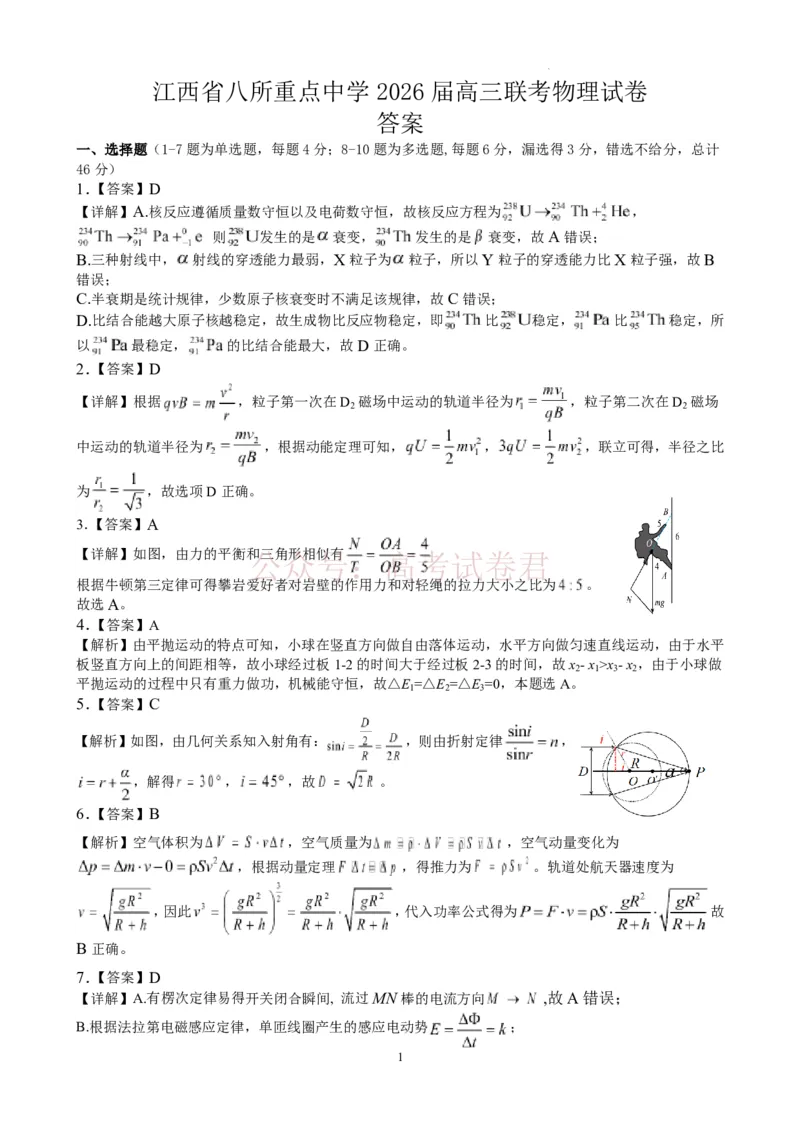 江西省八所重点中学 2026 届高三联考物理试卷
答案
一、选择题（1-7 题为单选题，每题 4 分；8-10 题为多选题,每题 6 分，漏选得 3 分，错选不给分，总计
46 分）
1.【答案】D
【详解】A.核反应遵循质量数守恒以及电荷数守恒，故核反应方程为 ²³⁸₉₂U→²³⁴₉₀Th+⁴₂He，
²³⁴₉₀Th→²³⁴₉₁Pa+⁰₋₁e 则 ²³⁸₉₂U发生的是α衰变，²³⁴₉₀Th发生的是β衰变，故 A 错误；
B.三种射线中，α射线的穿透能力最弱，X 粒子为α粒子，所以 Y 粒子的穿透能力比 X 粒子强，故 B
错误；
C.半衰期是统计规律，少数原子核衰变时不满足该规律，故 C 错误；
D.比结合能越大原子核越稳定，故生成物比反应物稳定，即 ²³⁴₉₀Th比 ²³⁸₉₂U稳定，²³⁴₉₁Pa比 ²³⁴₉₅Th稳定，所
以 ²³⁴₉₁Pa最稳定，²³⁴₉₁Pa的比结合能最大，故 D 正确。
2.【答案】D
【详解】根据 qvB = m v²/r，粒子第一次在D₂ 磁场中运动的轨道半径为 r₁ = mv₁/qB，粒子第二次在D₂ 磁场
中运动的轨道半径为 r₂ = mv₂/qB，根据动能定理可知，qU = 1/2 mv₁²，3qU = 1/2 mv₂²，联立可得，半径之比
为 r₁/r₂ = 1/√3，故选项D 正确。
3.【答案】A
【详解】如图，由力的平衡和三角形相似有 N/T = OA/OB = 4/5
公众号：高考试卷君
根据牛顿第三定律可得攀岩爱好者对岩壁的作用力和对轻绳的拉力大小之比为 4:5 。
故选 A。
B
5
6
O
4
A
N
mg
4.【答案】A
【解析】由平抛运动的特点可知，小球在竖直方向做自由落体运动，水平方向做匀速直线运动，由于水平
板竖直方向上的间距相等，故小球经过板 1-2 的时间大于经过板 2-3 的时间，故x₂- x₁>x₃- x₂，由于小球做
平抛运动的过程中只有重力做功，机械能守恒，故△E₁=△E₂=△E₃=0，本题选 A。
5.【答案】C
【解析】如图，由几何关系知入射角有：sini = (D/2)/R = D/2R，则由折射定律 sini/sinr = n，
i = r + α/2，解得 r = 30°，i = 45°，故 D = √2R 。
i
r
D
R
O
α
α
P
6.【答案】B
【解析】空气体积为ΔV = S·vΔt，空气质量为Δm=ρ·ΔV=ρSvΔt，空气动量变化为
Δp = Δm·v−0 = ρSv²Δt，根据动量定理 FΔt=Δp，得推力为 F = ρSv² 。轨道处航天器速度为
v = √(gR²/(R+h))，因此 v³ = (gR²/(R+h))^(3/2) = gR²/(R+h)·√(gR²/(R+h))，代入功率公式得为 P = F·v = ρS·gR²/(R+h)·√(gR²/(R+h)) 故
B 正确。
7.【答案】D
【详解】A.有楞次定律易得开关闭合瞬间, 流过MN棒的电流方向 M → N ,故 A 错误;
B.根据法拉第电磁感应定律，单匝线圈产生的感应电动势 E = ΔΦ/Δt = k；
1